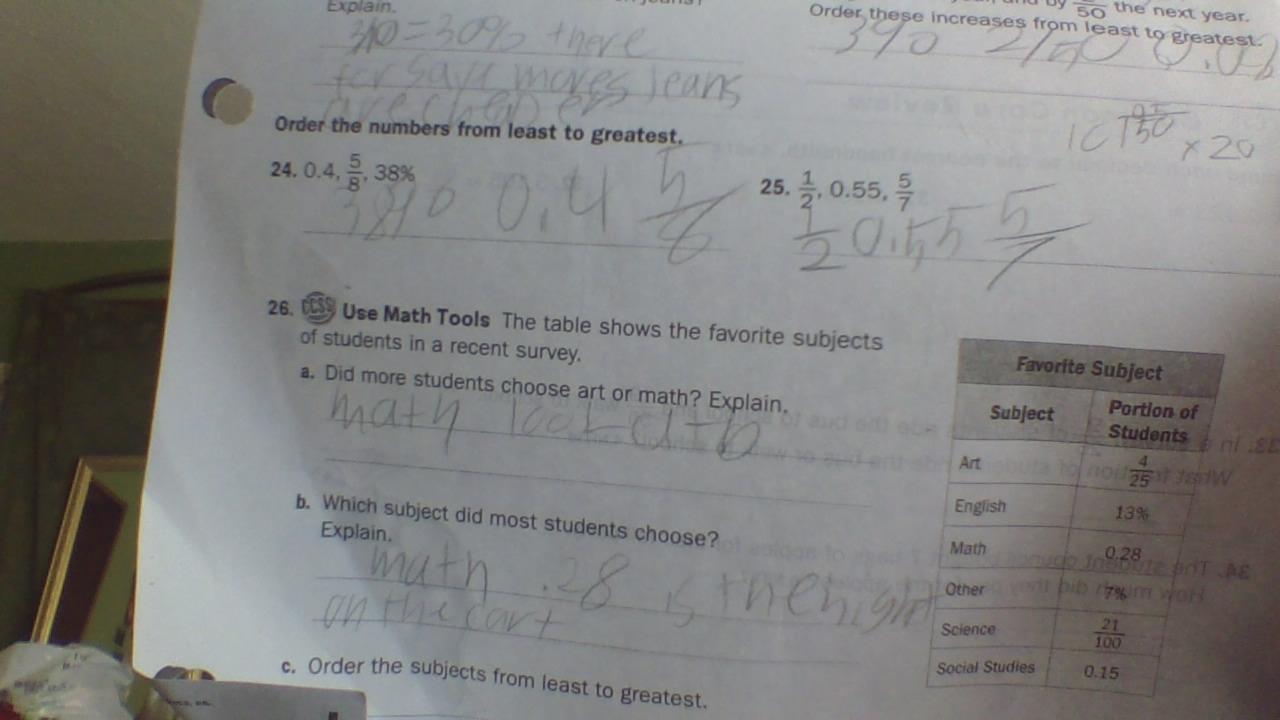 Explain.
50 the next year.
Order these increases from least to greatest.
= 30% there
for say moves jeans
are cheaper
Order the numbers from least to greatest.
24. 0.4, 5/8, 38%
38% 0.4 5/8
25. 1/2, 0.55, 5/7
1/2 0.55 5/7
50 x 20
26. CCSS Use Math Tools The table shows the favorite subjects
of students in a recent survey.
a. Did more students choose art or math? Explain.
math
b. Which subject did most students choose?
Explain.
math .28 is the
on the cart
c. Order the subjects from least to greatest.
Favorite Subject
Subject Portion of Students
Art 4/25
English 13%
Math 0.28
Other 7%
Science 21/100
Social Studies 0.15